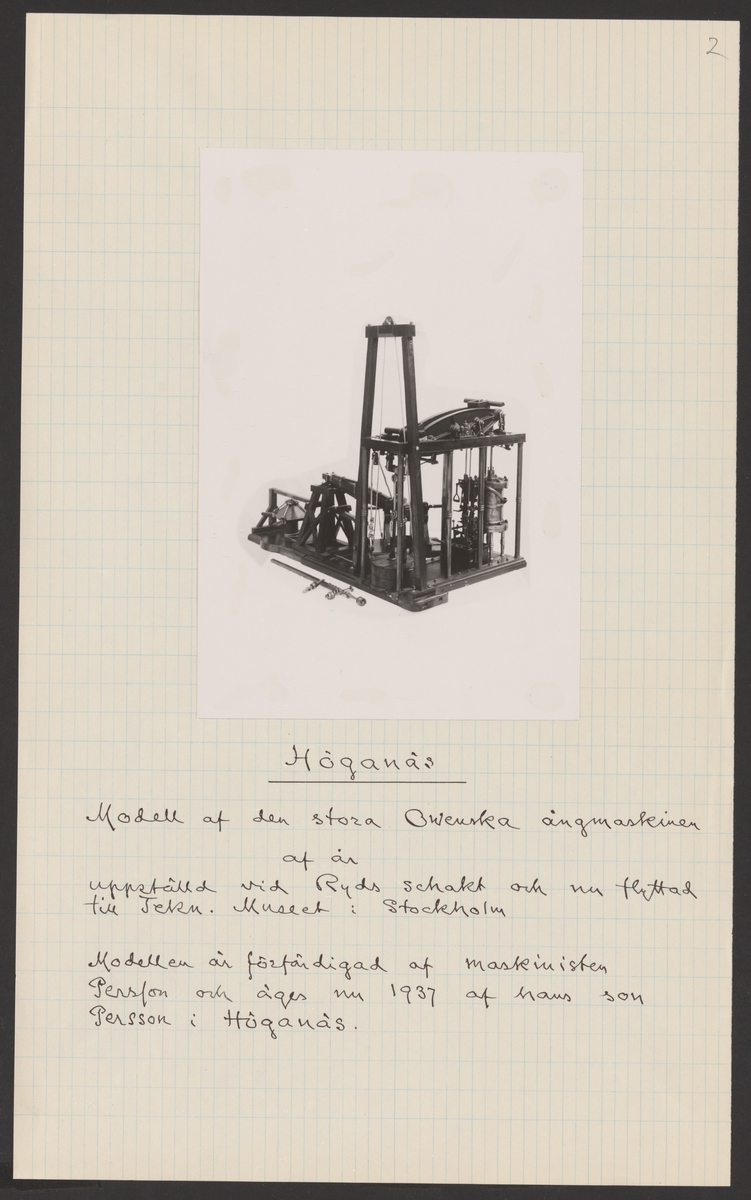 2
Höganäs
Modell af den stora Owenska ångmaskinen
af år
uppställd vid Ryds schakt och nu flyttad
till Tekn. Museet i Stockholm
Modellen är förfärdigad af maskinisten
Persson och äges nu 1937 af hans son
Persson i Höganäs.